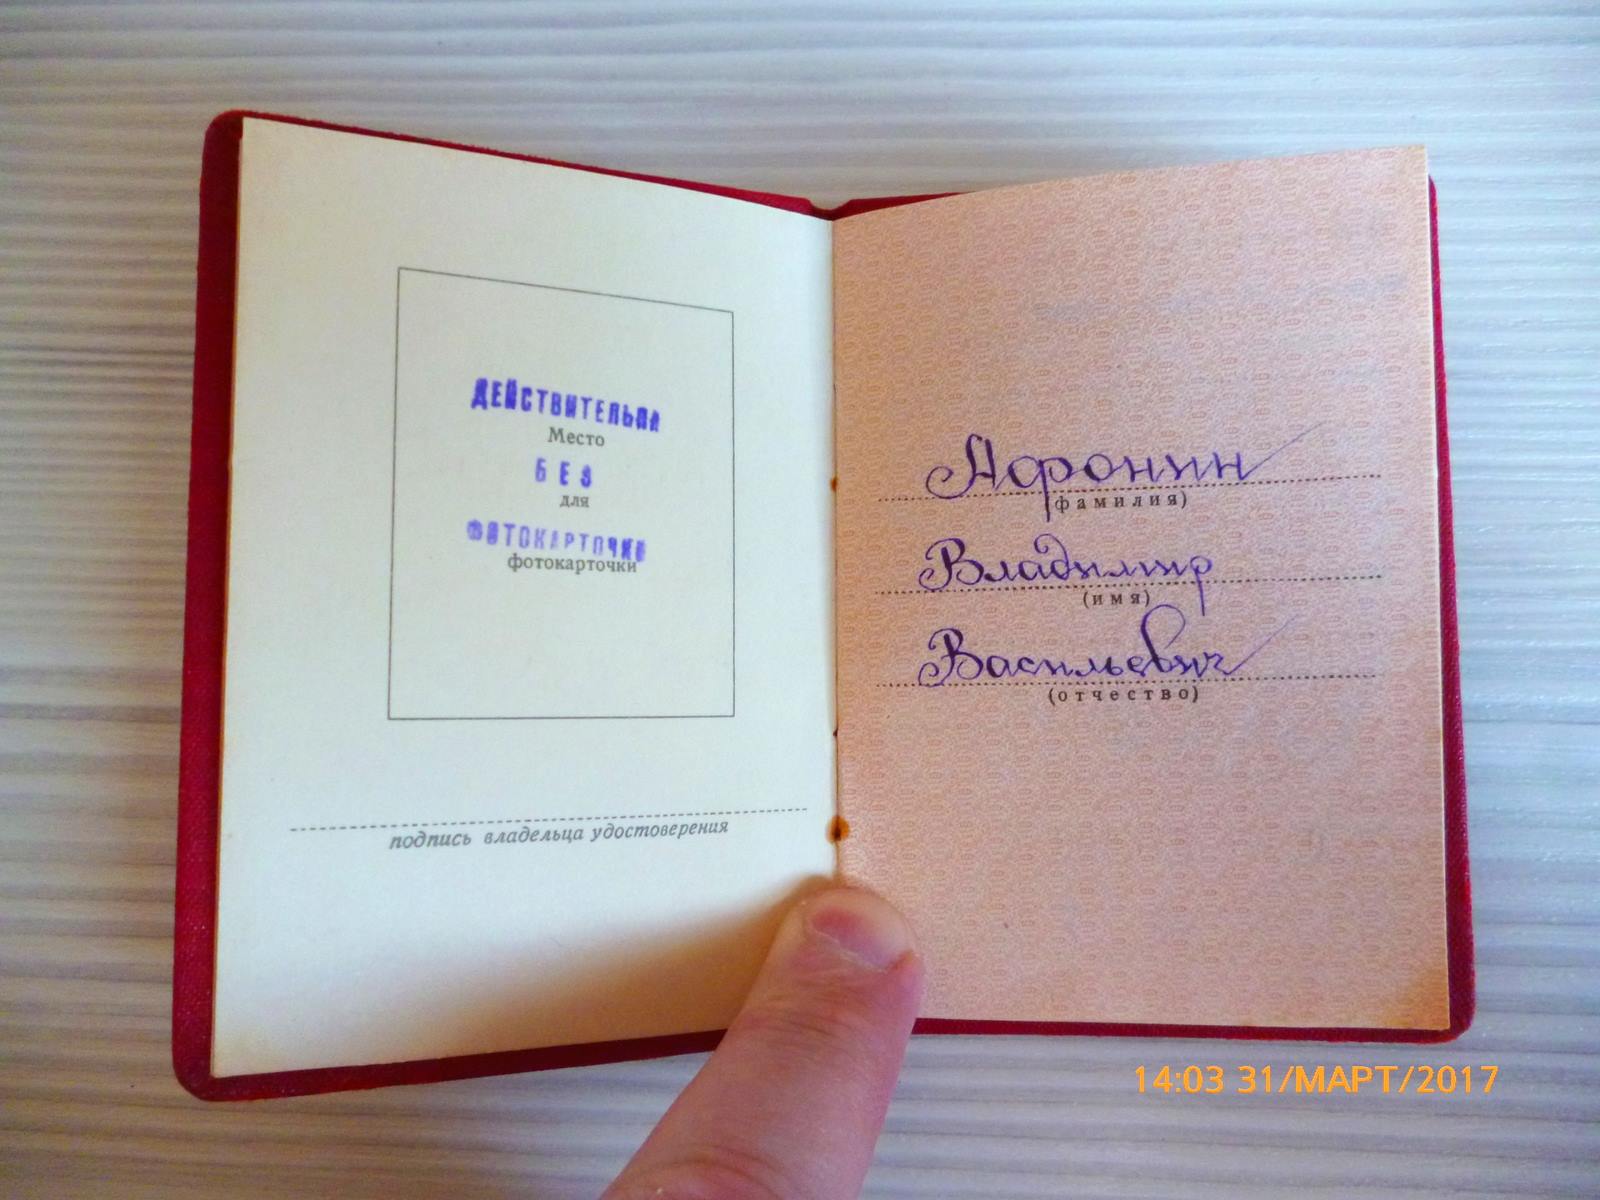 ДЕЙСТВИТЕЛЬНА
Место
БЕЗ
для
ФОТОКАРТОЧКИ
фотокарточки
подпись владельца удостоверения
Афонин
(фамилия)
Владимир
(имя)
Васильевич
(отчество)
14:03 31/МАРТ/2017